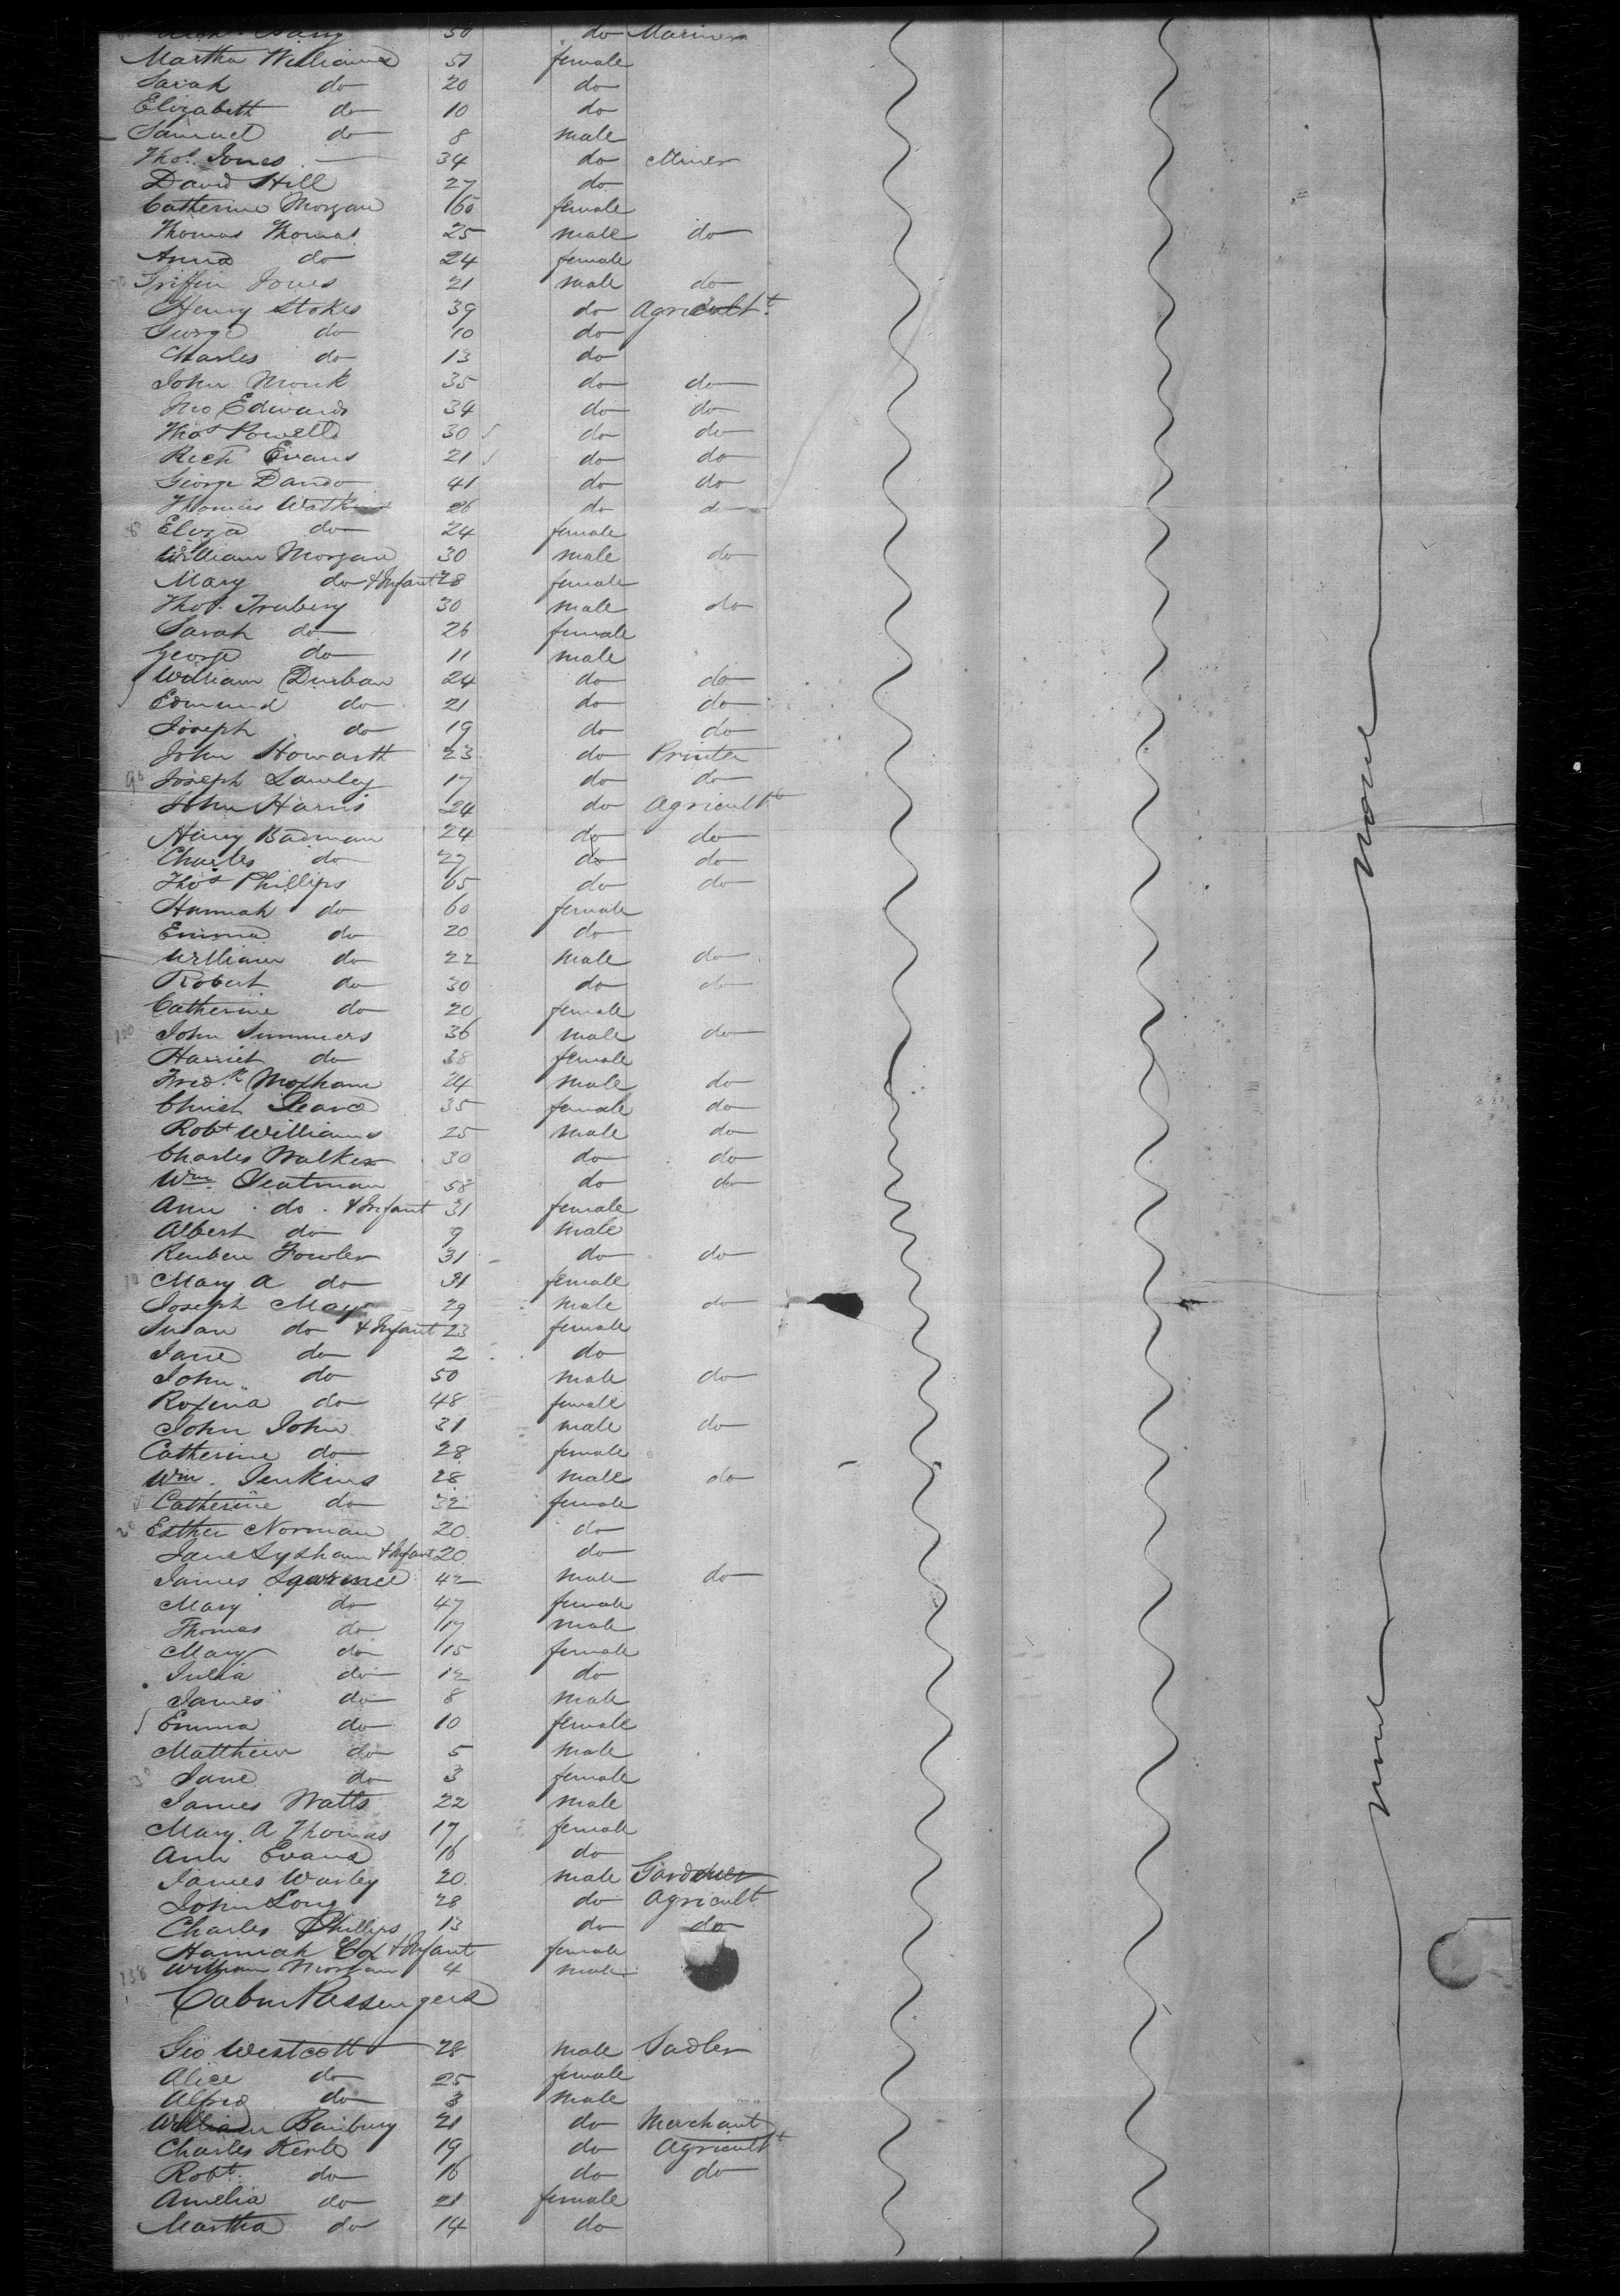 30 do Mariner
Martha Williams 51 female
Sarah do 20 do
Elizabeth do 10 do
Samuel do 8 male
Thos. Jones 34 do Miner
David Hill 27 do
Catherine Morgan 65 female
Thomas Thomas 25 male do
Anna do 24 female
Griffin Jones 21 male do
Henry Stokes 39 do Agricult.
George do 10 do
Charles do 13 do
John Monk 35 do do
Jno Edwards 34 do do
Thos Powell 30 do do
Rich Evans 21 do do
George Dando 41 do do
Thomas Watkins 26 do do
Eliza do 24 female
William Morgan 30 male do
Mary do & Infant 28 female
Thos. Truberg 30 male do
Sarah do 26 female
George do 11 male
William Durban 24 do do
Edmund do 21 do do
Joseph do 19 do do
John Howarth 23 do Printer
90 Joseph Lawley 17 do do
John Harris 24 do Agricult
Henry Badman 24 do do
Charles do 27 do do
Thos Phillips 65 do do
Hannah do 60 female
Emma do 20 do
William do 22 male do
Robert do 30 do do
Catherine do 20 female
100 John Summers 36 male do
Harriet do 38 female
Fredk Moxham 24 male do
Christ Pearce 35 female do
Robt Williams 25 male do
Charles Walker 30 do do
Wm. Yeatman 58 do do
Ann do & Infant 31 female
Albert do 9 male
Reuben Fowler 31 do do
10 Mary A do 31 female
Joseph May 29 male do
Susan do & Infant 23 female
Jane do 2 do
John do 50 male do
Roxena do 48 female
John John 31 male do
Catherine do 28 female
Wm. Jenkins 28 male do
Catherine do 32 female
20 Esther Norman 20 do
Jane Lysham & Infant 20 do
James Lawrence 42 male do
Mary do 47 female
Thomas do 17 male
Mary do 15 female
Julia do 12 do
James do 8 male
Emma do 10 female
Matthew do 5 male
30 Jane do 3 female
James Watts 22 male
Mary A Thomas 17 female
Ann Evans 16 do
James Warley 20 male Gardner
John Long 28 do Agricult
Charles Phillips 13 do do
Hannah Cox & Infant female
138 William Morgan 4 male
Cabin Passengers
Geo Westcott 28 male Sadler
Alice do 25 female
Alfred do 3 male
William Banbury 21 do Merchant
Charles Kerle 19 do Agricult
Robt. do 16 do do
Amelia do 21 female
Martha do 14 do
none
none